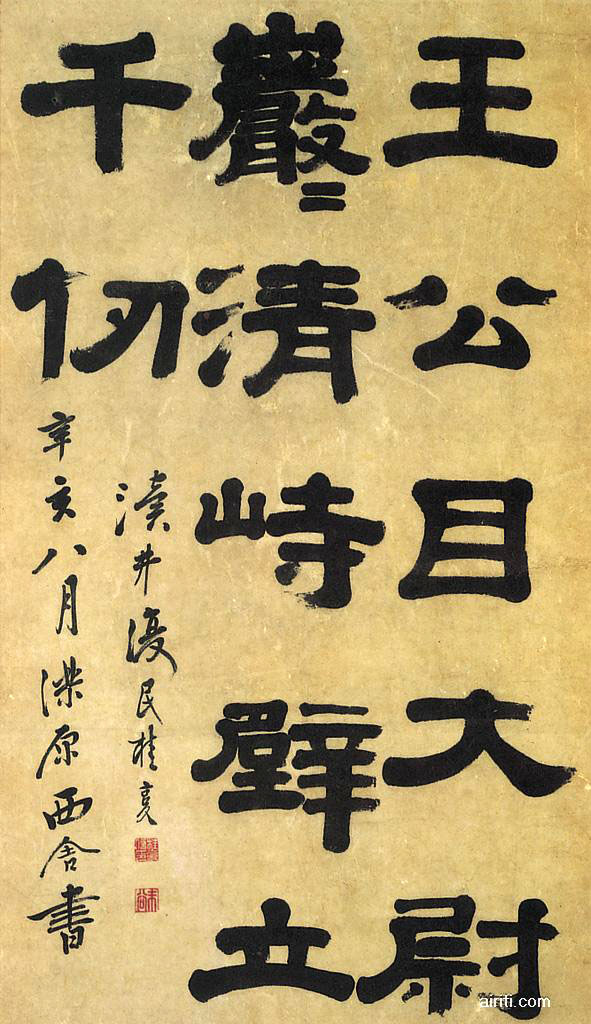 王公目大尉
巖〻清峙壁立
千仞
瀆井復民桂馥
辛亥八月濼原西舍書
airiti.com